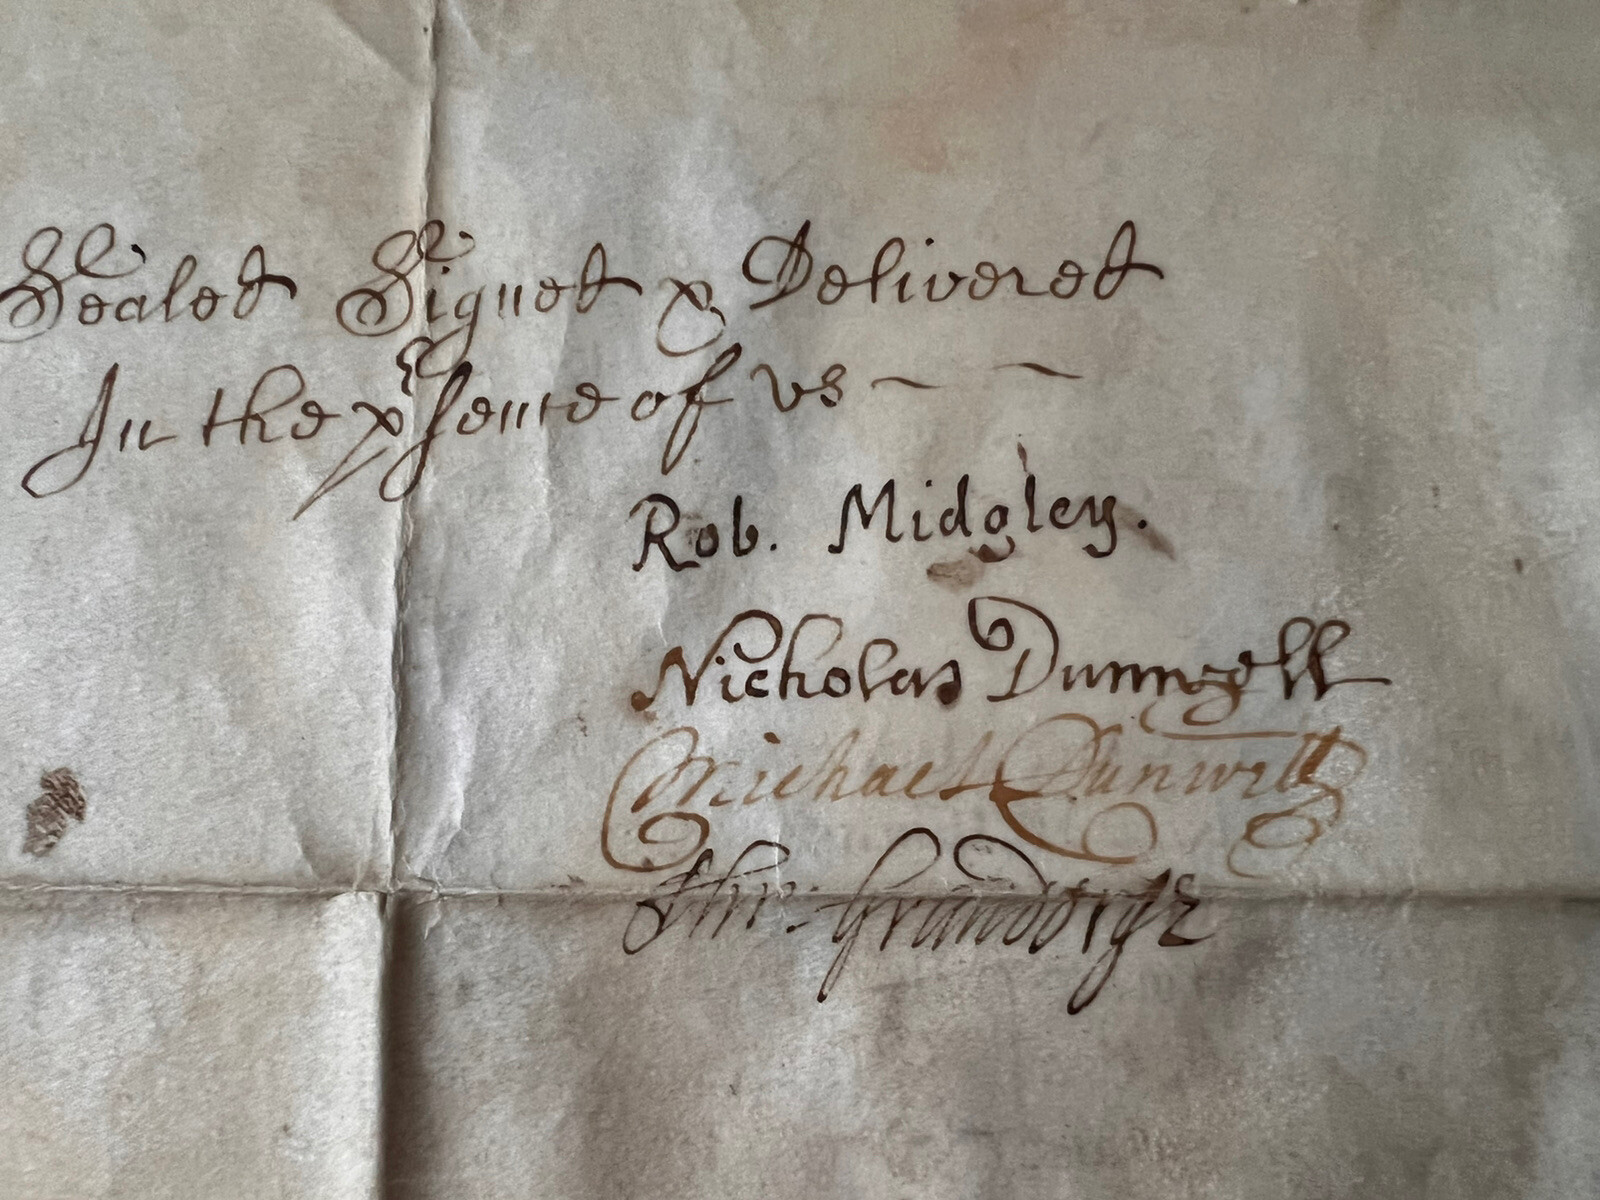 Sealed Signed & Delivered
In the pʳsence of us
Rob. Midgley.
Nicholas Dunnwell
Michael Dunwell